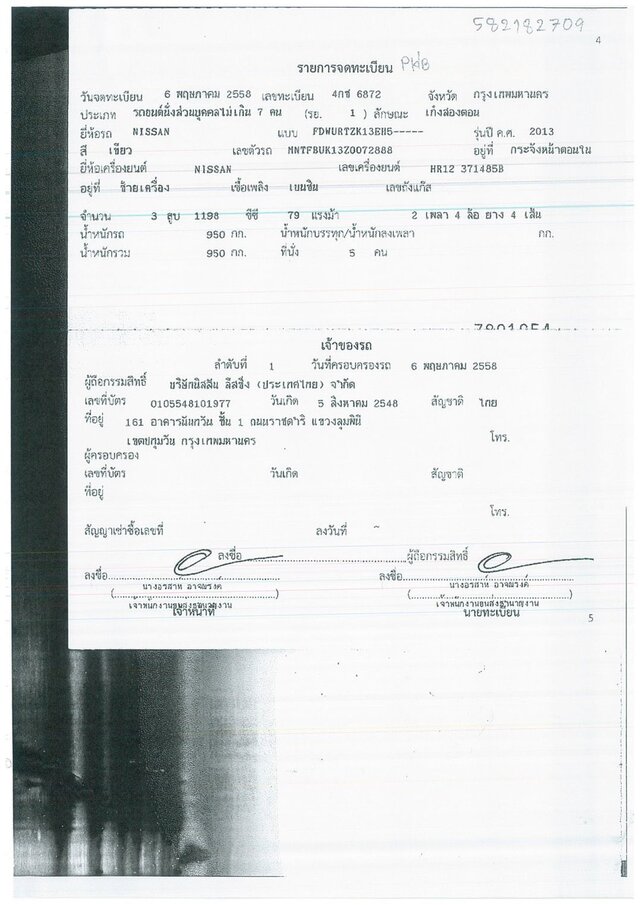 582182709
4
รายการจดทะเบียน
วันจดทะเบียน 6 พฤษภาคม 2558 เลขทะเบียน 4กช 6872 จังหวัด กรุงเทพมหานคร
ประเภท รถยนต์นั่งส่วนบุคคลไม่เกิน 7 คน (รย. 1 ) ลักษณะ เก๋งสองตอน
ยี่ห้อรถ NISSAN แบบ FDWURTZK13EH5----- รุ่นปี ค.ศ. 2013
สี เขียว เลขตัวรถ MNTFBUK13Z0072888 อยู่ที่ กระจังหน้าตอนใน
ยี่ห้อเครื่องยนต์ NISSAN เลขเครื่องยนต์ HR12 371485B
อยู่ที่ ซ้ายเครื่อง เชื้อเพลิง เบนซิน เลขถังแก๊ส
จำนวน 3 สูบ 1198 ซีซี 79 แรงม้า 2 เพลา 4 ล้อ ยาง 4 เส้น
น้ำหนักรถ 950 กก. น้ำหนักบรรทุก/น้ำหนักลงเพลา กก.
น้ำหนักรวม 950 กก. ที่นั่ง 5 คน
เจ้าของรถ
ลำดับที่ 1 วันที่ครอบครองรถ 6 พฤษภาคม 2558
ผู้ถือกรรมสิทธิ์ บริษัทนิสสัน ลีสซิ่ง (ประเทศไทย) จำกัด
เลขที่บัตร 0105548101977 วันเกิด 5 สิงหาคม 2548 สัญชาติ ไทย
ที่อยู่ 161 อาคารนันทวัน ชั้น 1 ถนนราชดำริ แขวงลุมพินี
เขตปทุมวัน กรุงเทพมหานคร โทร.
ผู้ครอบครอง
เลขที่บัตร วันเกิด สัญชาติ
ที่อยู่
โทร.
สัญญาเช่าซื้อเลขที่ ลงวันที่ ~
ลงชื่อ ผู้ถือกรรมสิทธิ์
ลงชื่อ ลงชื่อ
เจ้าพนักงานขนส่งชำนาญงาน เจ้าพนักงานขนส่งชำนาญงาน
เจ้าหน้าที่ นายทะเบียน
5